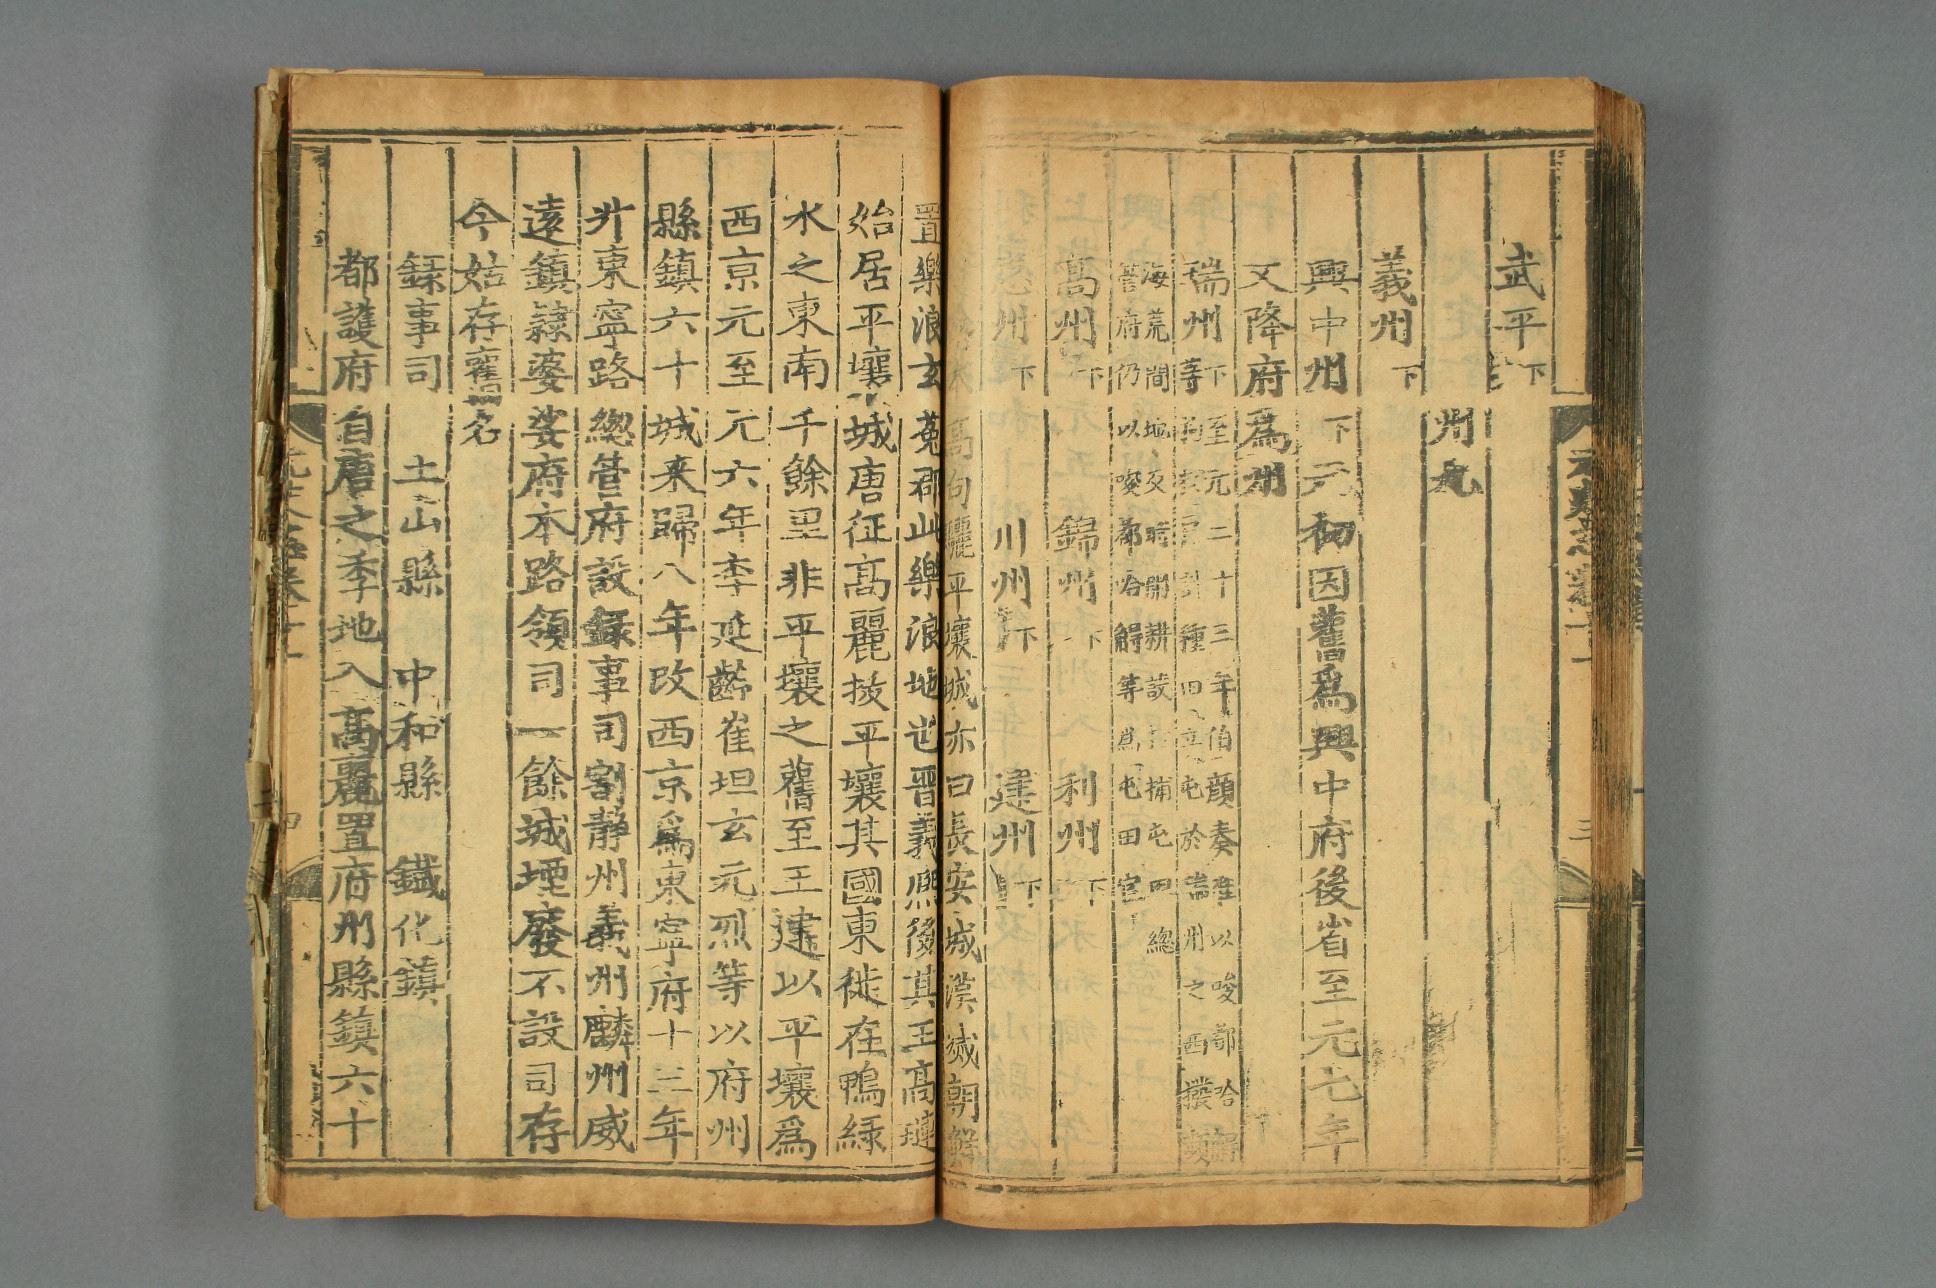 武平下
州九
義州下
興中州下元初因舊爲興中府後省至元七年
又降府爲州
瑞州下 至元二十三年伯顔奏准以唆都哈䚟
等拘收戸計種田立屯於瑞州之西撥瀕
海荒閒地及時開耕設打捕屯田總
管府仍以唆都哈䚟等爲屯田官
髙州下 錦州下 利州下
惠州下 川州下 建州下
髙句驪平壤城亦曰長安城漢滅朝鮮
置樂浪玄菟郡此樂浪地也晋義熈後其王髙璉
始居平壤城唐征髙麗拔平壤其國東徙在鴨綠
水之東南千餘里非平壤之舊至王建以平壤爲
西京元至元六年李延齡崔坦玄元烈等以府州
縣鎮六十城来歸八年改西京爲東寧府十三年
升東寧路緫管府設錄事司割靜州義州麟州威
遠鎮隸婆娑府本路領司一餘城堙廢不設司存
今姑存舊名
錄事司 土山縣 中和縣 鐵化鎮
都護府 自唐之季地入髙麗置府州縣鎮六十